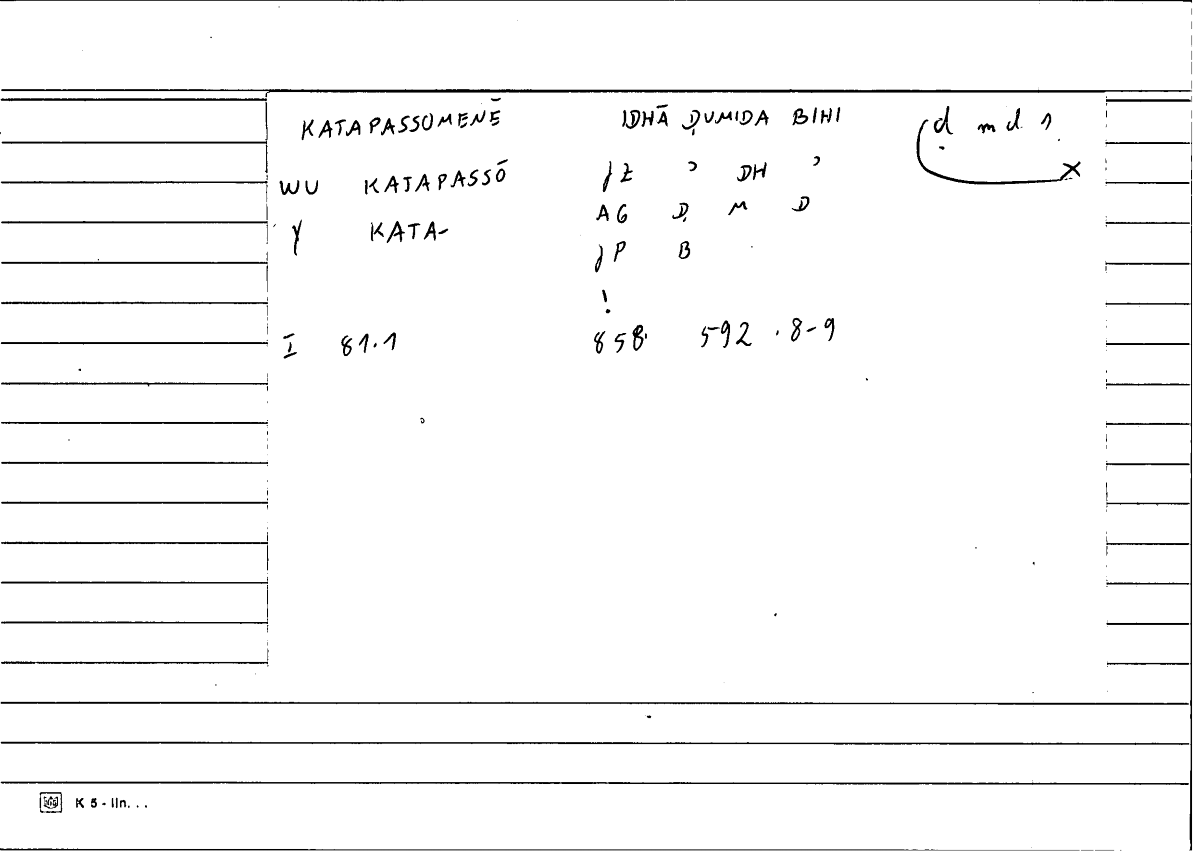 KATAPASSOMENĒ IDHĀ ḌUMIDA BIHI ḍ md 1
WU KATAPASSŌ JZ ʾ DH ʾ X
AG Ḍ M D
γ KATA- JP B
!
I 81.1 858 592.8-9
K 5 - lin. . .